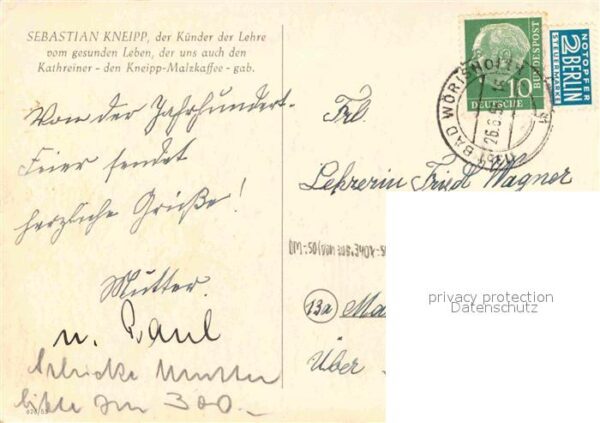 SEBASTIAN KNEIPP, der Künder der Lehre
vom gesunden Leben, der uns auch den
Kathreiner - den Kneipp-Malzkaffee - gab.
Von der Jahrhundert-
Feier sendet
herzliche Grüße!
Mutter.
u. Paul
Mutter
bitte um 300.-
10
DEUTSCHE
BUNDESPOST
NOTOPFER
2 BERLIN
STEUERMARKE
BAD WÖRISHOFEN
26.6.5
Frl.
Lehrerin Fried Wagner
13a Ma
Über
privacy protection
Datenschutz